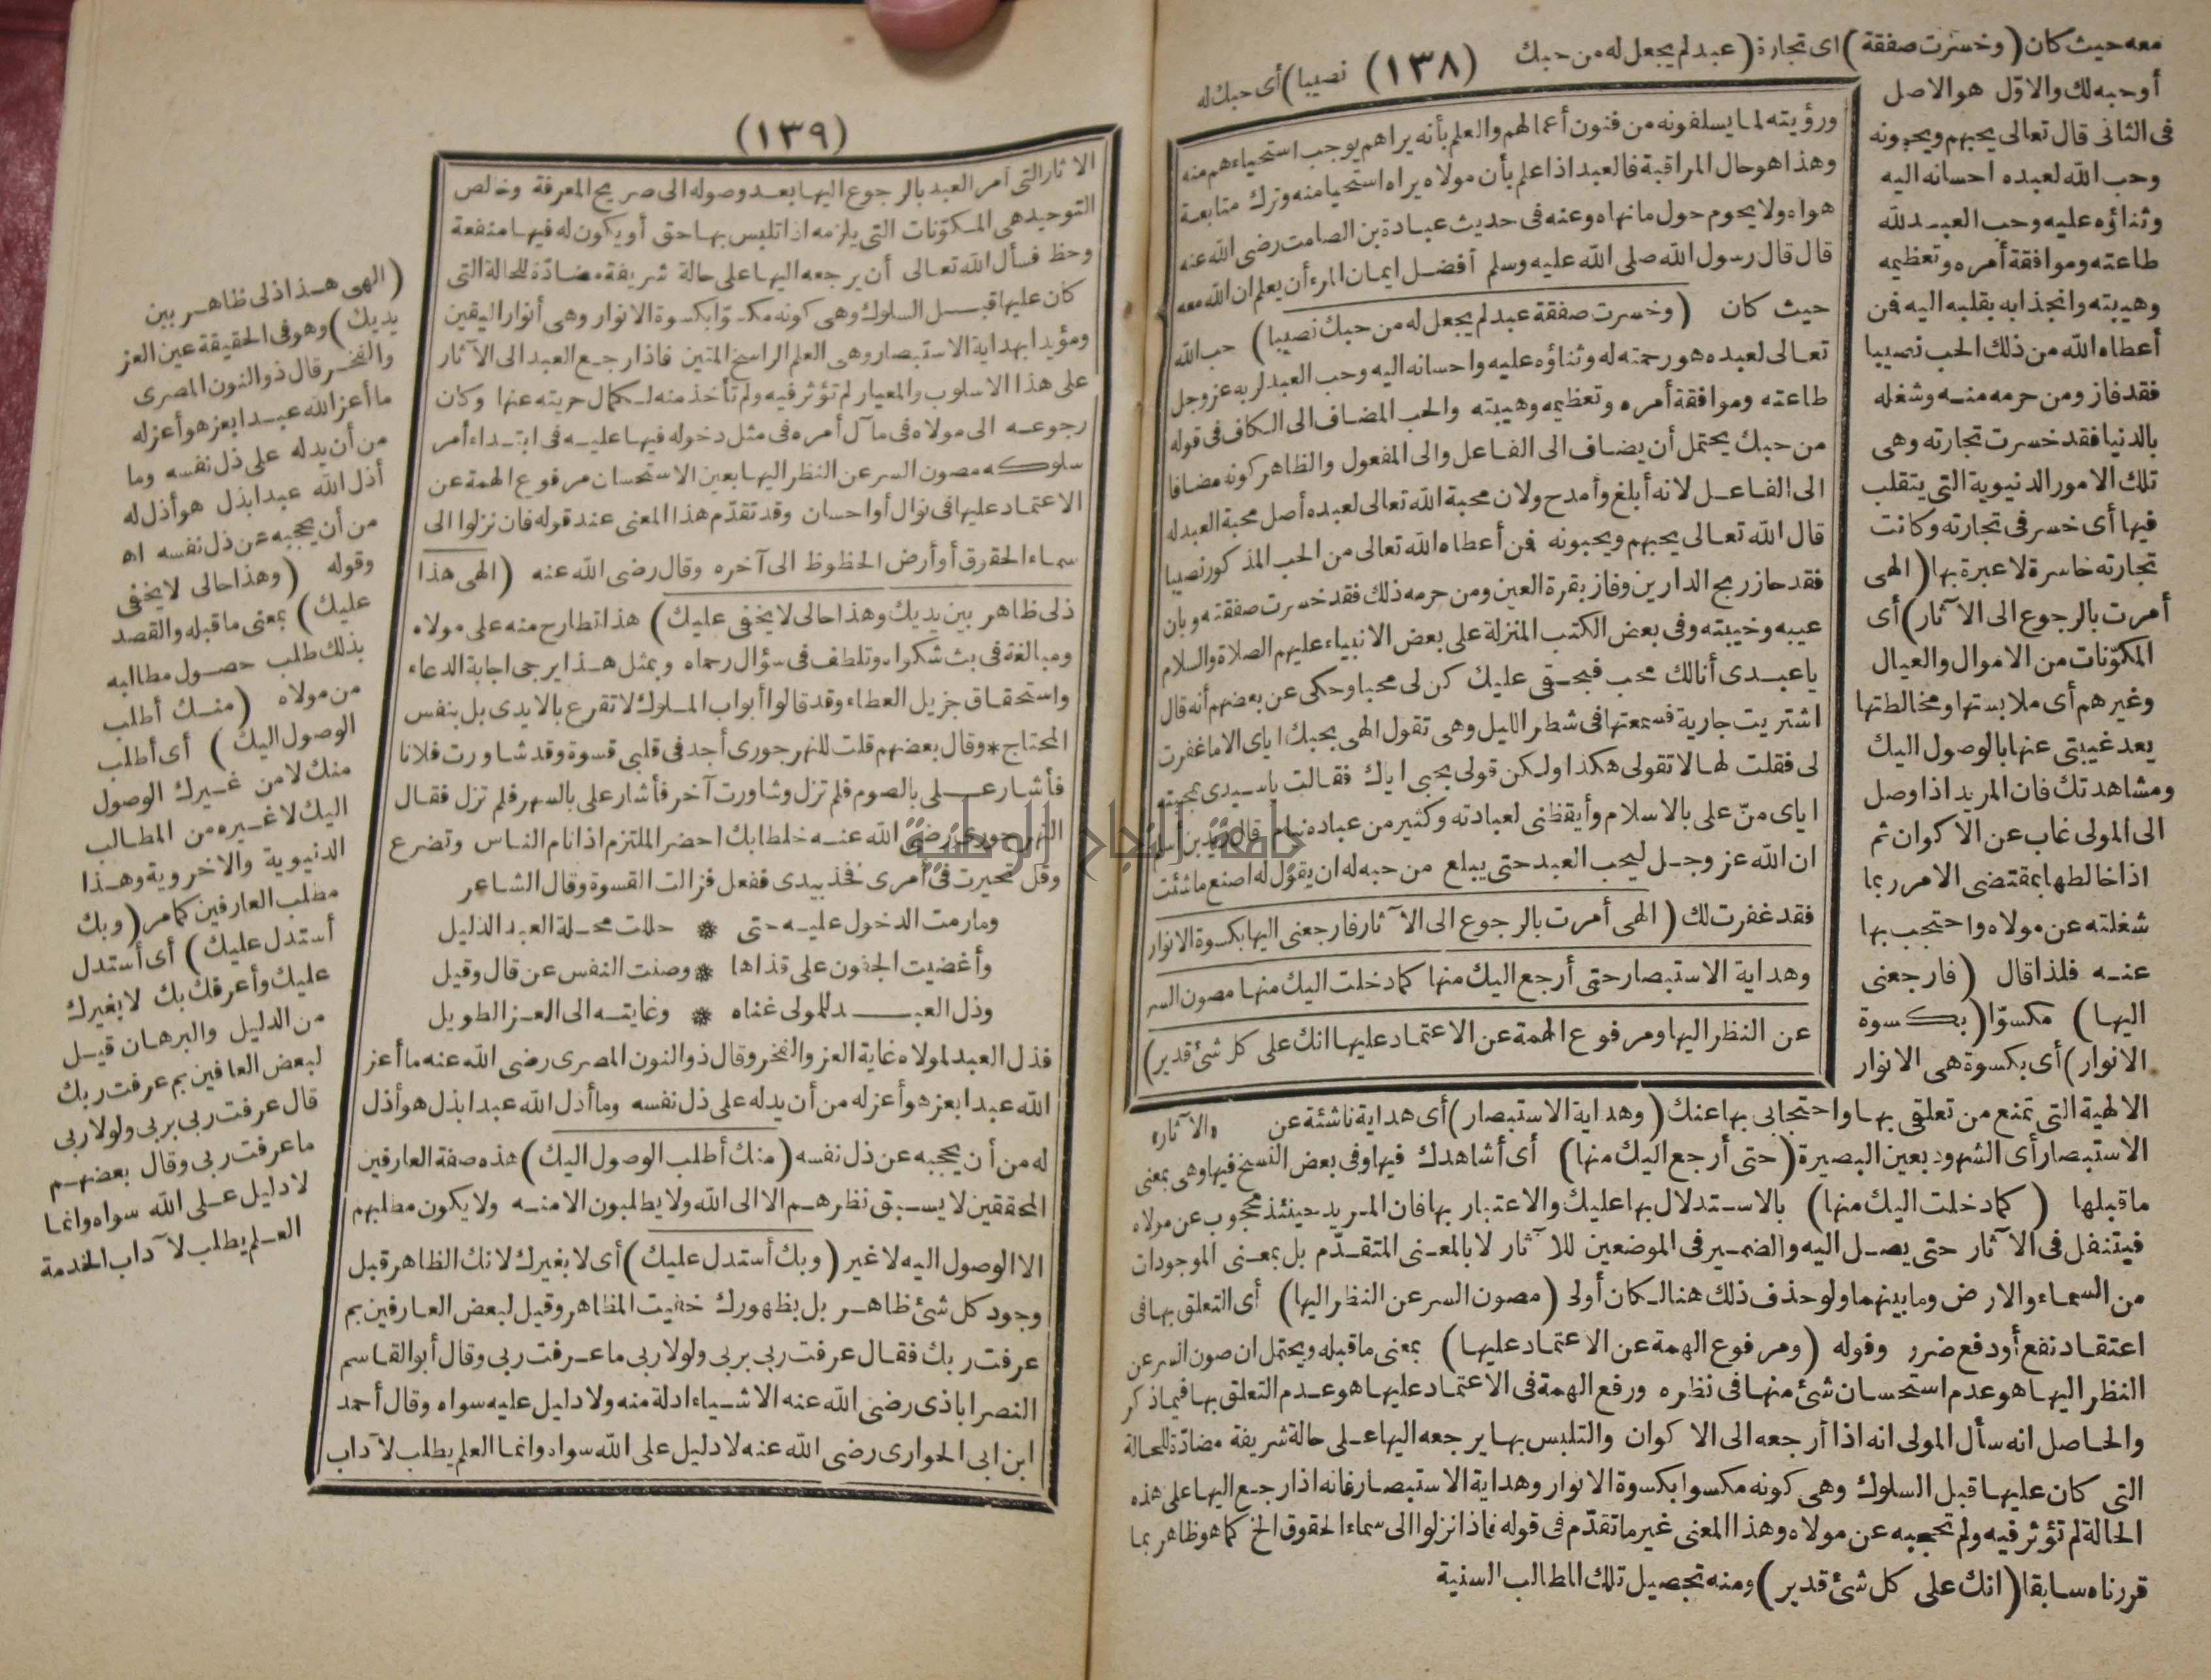 معه حيث كان (وخسرت صفقة) اى تجارة (عبد لم يجعل له من حبك (١٣٨) نصيبا) أى حبك له
أو حبه لك والاوّل هو الاصل
فى الثانى قال تعالى يحبهم ويحبونه
وحب الله لعبده احسانه اليه
وثناؤه عليه وحب العبد لله
طاعته وموافقة أمره وتعظيمه
وهيبته وانجذابه بقلبه اليه فمن
أعطاه الله من ذلك الحب نصيبا
فقد فاز ومن حرمه منه وشغله
بالدنيا فقد خسرت تجارته وهى
تلك الامور الدنيوية التى يتقلب
فيها أى خسر فى تجارته وكانت
تجارته خاسرة لا عبرة بها (الهى
أمرت بالرجوع الى الآثار) أى
المكوّنات من الاموال والعيال
وغيرهم أى ملابستها ومخالطتها
بعد غيبتى عنها بالوصول اليك
ومشاهدتك فان المريد اذا وصل
الى المولى غاب عن الاكوان ثم
اذا خالطها بمقتضى الامر ربما
شغلته عن مولاه واحتجب بها
عنه فلذا قال (فارجعنى
اليها) مكسوّا (بكسوة
الانوار) أى بكسوة هى الانوار
الالهية التى تمنع من تعلقى بها واحتجابى بها عنك (وهداية الاستبصار) أى هداية ناشئة عن
الاستبصار أى الشهود بعين البصيرة (حتى أرجع اليك منها) أى أشاهدك فيها وفى بعض النسخ فيها وهى بمعنى
ما قبلها (كما دخلت اليك منها) بالاستدلال بها عليك والاعتبار بها فان المريد حينئذ محجوب عن مولاه
فيتنفل فى الآثار حتى يصل اليه والضمير فى الموضعين للآثار لا بالمعنى المتقدّم بل بمعنى الموجودات
من السماء والارض وما بينهما ولو حذف ذلك هنا لكان أولى (مصون السر عن النظر اليها) أى التعلق بها فى
اعتقاد نفع أو دفع ضرر وقوله (ومرفوع الهمة عن الاعتماد عليها) بمعنى ما قبله ويحتمل ان صون السر عن
النظر اليها هو عدم استحسان شئ منها فى نظره ورفع الهمة فى الاعتماد عليها هو عدم التعلق بها فيما ذكر
والحاصل انه سأل المولى انه اذا أرجعه الى الاكوان والتلبس بها يرجعه اليها على حالة شريفة مضادّة للحالة
التى كان عليها قبل السلوك وهى كونه مكسوا بكسوة الانوار وهداية الاستبصار فانه اذا رجع اليها على هذه
الحالة لم تؤثر فيه ولم تحجبه عن مولاه وهذا المعنى غير ما تقدّم فى قوله فاذا نزلوا الى سماء الحقوق الخ كما هو ظاهر بما
قررناه سابقا (انك على كل شئ قدير) ومنه تحصيل تلك المطالب السنية
ورؤيته لما يسلفونه من فنون أعمالهم والعلم بأنه يراهم يوجب استحياءهم منه
وهذا هو حال المراقبة فالعبد اذا علم بأن مولاه يراه استحيا منه وترك متابعة
هواه ولا يحوم حول ما نهاه وعنه فى حديث عبادة بن الصامت رضى الله عنه
قال قال رسول الله صلى الله عليه وسلم أفضل ايمان المرء أن يعلم ان الله معه
حيث كان (وخسرت صفقة عبد لم يجعل له من حبك نصيبا) حب الله
تعالى لعبده هو رحمته له وثناؤه عليه واحسانه اليه وحب العبد لربه عز وجل
طاعته وموافقة أمره وتعظيمه وهيبته والحب المضاف الى الكاف فى قوله
من حبك يحتمل أن يضاف الى الفاعل والى المفعول والظاهر كونه مضافا
الى الفاعل لانه أبلغ وأمدح ولان محبة الله تعالى لعبده أصل محبة العبد له
قال الله تعالى يحبهم ويحبونه فمن أعطاه الله تعالى من الحب المذكور نصيبا
فقد حاز ربح الدارين وفاز بقرة العين ومن حرمه ذلك فقد خسرت صفقته وبان
عيبه وخيبته وفى بعض الكتب المنزلة على بعض الانبياء عليهم الصلاة والسلام
يا عبدى أنا لك محب فبحقى عليك كن لى محبا وحكى عن بعضهم أنه قال
اشتريت جارية فسمعتها فى شطر الليل وهى تقول الهى بحبك اياى الا ما غفرت
لى فقلت لها لا تقولى هكذا ولكن قولى بحبى اياك فقالت يا سيدى بمحبته
اياى منّ على بالاسلام وأيقظنى لعبادته وكثير من عباده نيام قال زيد بن أسلم
ان الله عز وجل ليحب العبد حتى يبلغ من حبه له ان يقول له اصنع ما شئت
فقد غفرت لك (الهى أمرت بالرجوع الى الآثار فارجعنى اليها بكسوة الانوار
وهداية الاستبصار حتى أرجع اليك منها كما دخلت اليك منها مصون السر
عن النظر اليها ومرفوع الهمة عن الاعتماد عليها انك على كل شئ قدير)
«الآثار»
(١٣٩)
الآثار التى أمر العبد بالرجوع اليها بعد وصوله الى صريح المعرفة وخالص
التوحيد هى المكوّنات التى يلزمه اذا تلبس بها حق أو يكون له فيها منفعة
وحظ فسأل الله تعالى أن يرجعه اليها على حالة شريفة مضادّة للحالة التى
كان عليها قبل السلوك وهى كونه مكسوّا بكسوة الانوار وهى أنوار اليقين
ومؤيدا بهداية الاستبصار وهى العلم الراسخ المتين فاذا رجع العبد الى الآثار
على هذا الاسلوب والمعيار لم تؤثر فيه ولم تأخذ منه لكمال حريته عنها وكان
رجوعه الى مولاه فى مآل أمره فى مثل دخوله فيها عليه فى ابتداء أمر
سلوكه مصون السر عن النظر اليها بعين الاستحسان مرفوع الهمة عن
الاعتماد عليها فى نوال أو احسان وقد تقدّم هذا المعنى عند قوله فان نزلوا الى
سماء الحقوق أو أرض الحظوظ الى آخره وقال رضى الله عنه (الهى هذا
ذلى ظاهر بين يديك وهذا حالى لا يخفى عليك) هذا تطارح منه على مولاه
ومبالغة فى بث شكواه وتلطف فى سؤال رحماه وبمثل هذا يرجى اجابة الدعاء
واستحقاق جزيل العطاء وقد قالوا أبواب الملوك لا تقرع بالايدى بل بنفس
المحتاج * وقال بعضهم قلت للنهرجورى أجد فى قلبى قسوة وقد شاورت فلانا
فأشار على بالصوم فلم تزل وشاورت آخر فأشار على بالسهر فلم تزل فقال
النهرجورى رضى الله عنه خلطا بك احضر الملتزم اذا نام الناس وتضرع
وقل تحيرت فى أمرى فخذ بيدى ففعل فزالت القسوة وقال الشاعر
وما رمت الدخول عليه حتى * حللت محلة العبد الذليل
وأغضيت الجفون على قذاها * وصنت النفس عن قال وقيل
وذل العبد للمولى غناه * وغايته الى العز الطويل
فذل العبد لمولاه غاية العز والفخر وقال ذو النون المصرى رضى الله عنه ما أعز
الله عبدا بعز هو أعز له من أن يدله على ذل نفسه وما أذل الله عبدا بذل هو أذل
له من أن يحجبه عن ذل نفسه (منك أطلب الوصول اليك) هذه صفة العارفين
المحققين لا يسبق نظرهم الا الى الله ولا يطلبون الا منه ولا يكون مطلبهم
الا الوصول اليه لا غير (وبك أستدل عليك) أى لا بغيرك لانك الظاهر قبل
وجود كل شئ ظاهر بل بظهورك خفيت المظاهر وقيل لبعض العارفين بم
عرفت ربك فقال عرفت ربى بربى ولولا ربى ما عرفت ربى وقال أبو القاسم
النصراباذى رضى الله عنه الاشياء ادلة منه ولا دليل عليه سواه وقال أحمد
ابن ابى الحوارى رضى الله عنه لا دليل على الله سواه وانما العلم يطلب لآداب
(الهى هذا ذلى ظاهر بين
يديك) وهو فى الحقيقة عين العز
والفخر قال ذو النون المصرى
ما أعز الله عبدا بعز هو أعز له
من أن يدله على ذل نفسه وما
أذل الله عبدا بذل هو أذل له
من أن يحجبه عن ذل نفسه اه
وقوله (وهذا حالى لا يخفى
عليك) بمعنى ما قبله والقصد
بذلك طلب حصول مطالبه
من مولاه (منك أطلب
الوصول اليك) أى أطلب
منك لا من غيرك الوصول
اليك لا غيره من المطالب
الدنيوية والاخروية وهذا
مطلب العارفين كما مر (وبك
أستدل عليك) أى أستدل
عليك وأعرفك بك لا بغيرك
من الدليل والبرهان قيل
لبعض العافين بم عرفت ربك
قال عرفت ربى بربى ولولا ربى
ما عرفت ربى وقال بعضهم
لا دليل على الله سواه وانما
العلم يطلب لآداب الخدمة
جامعة النجاح الوطنية